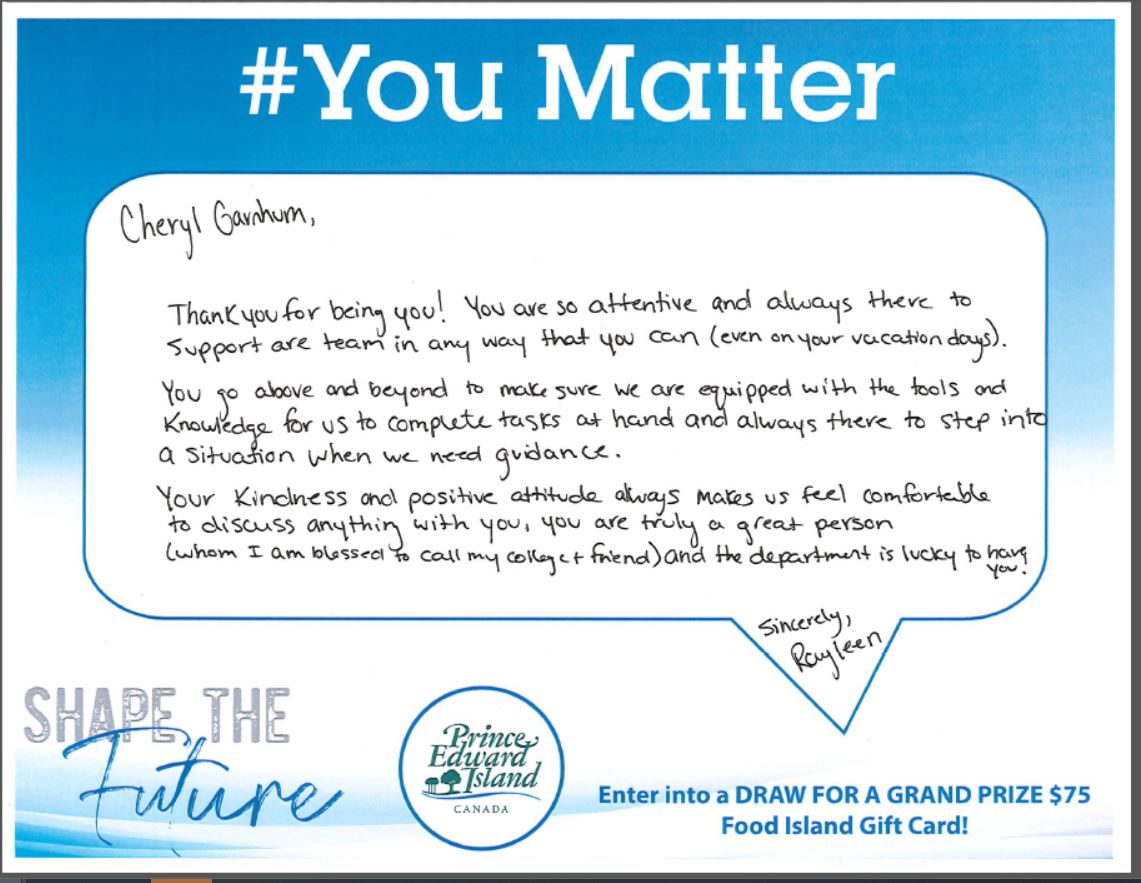 #You Matter
Cheryl Garnhum,
Thank you for being you! You are so attentive and always there to
support are team in any way that you can (even on your vacation days).
You go above and beyond to make sure we are equipped with the tools and
Knowledge for us to complete tasks at hand and always there to step into
a situation when we need guidance.
Your Kindness and positive attitude always makes us feel comfortable
to discuss anything with you, you are truly a great person
(whom I am blessed to call my colleg + friend) and the department is lucky to have
you!
Sincerely,
Rayleen
SHAPE THE
Future
Prince
Edward
Island
CANADA
Enter into a DRAW FOR A GRAND PRIZE $75
Food Island Gift Card!